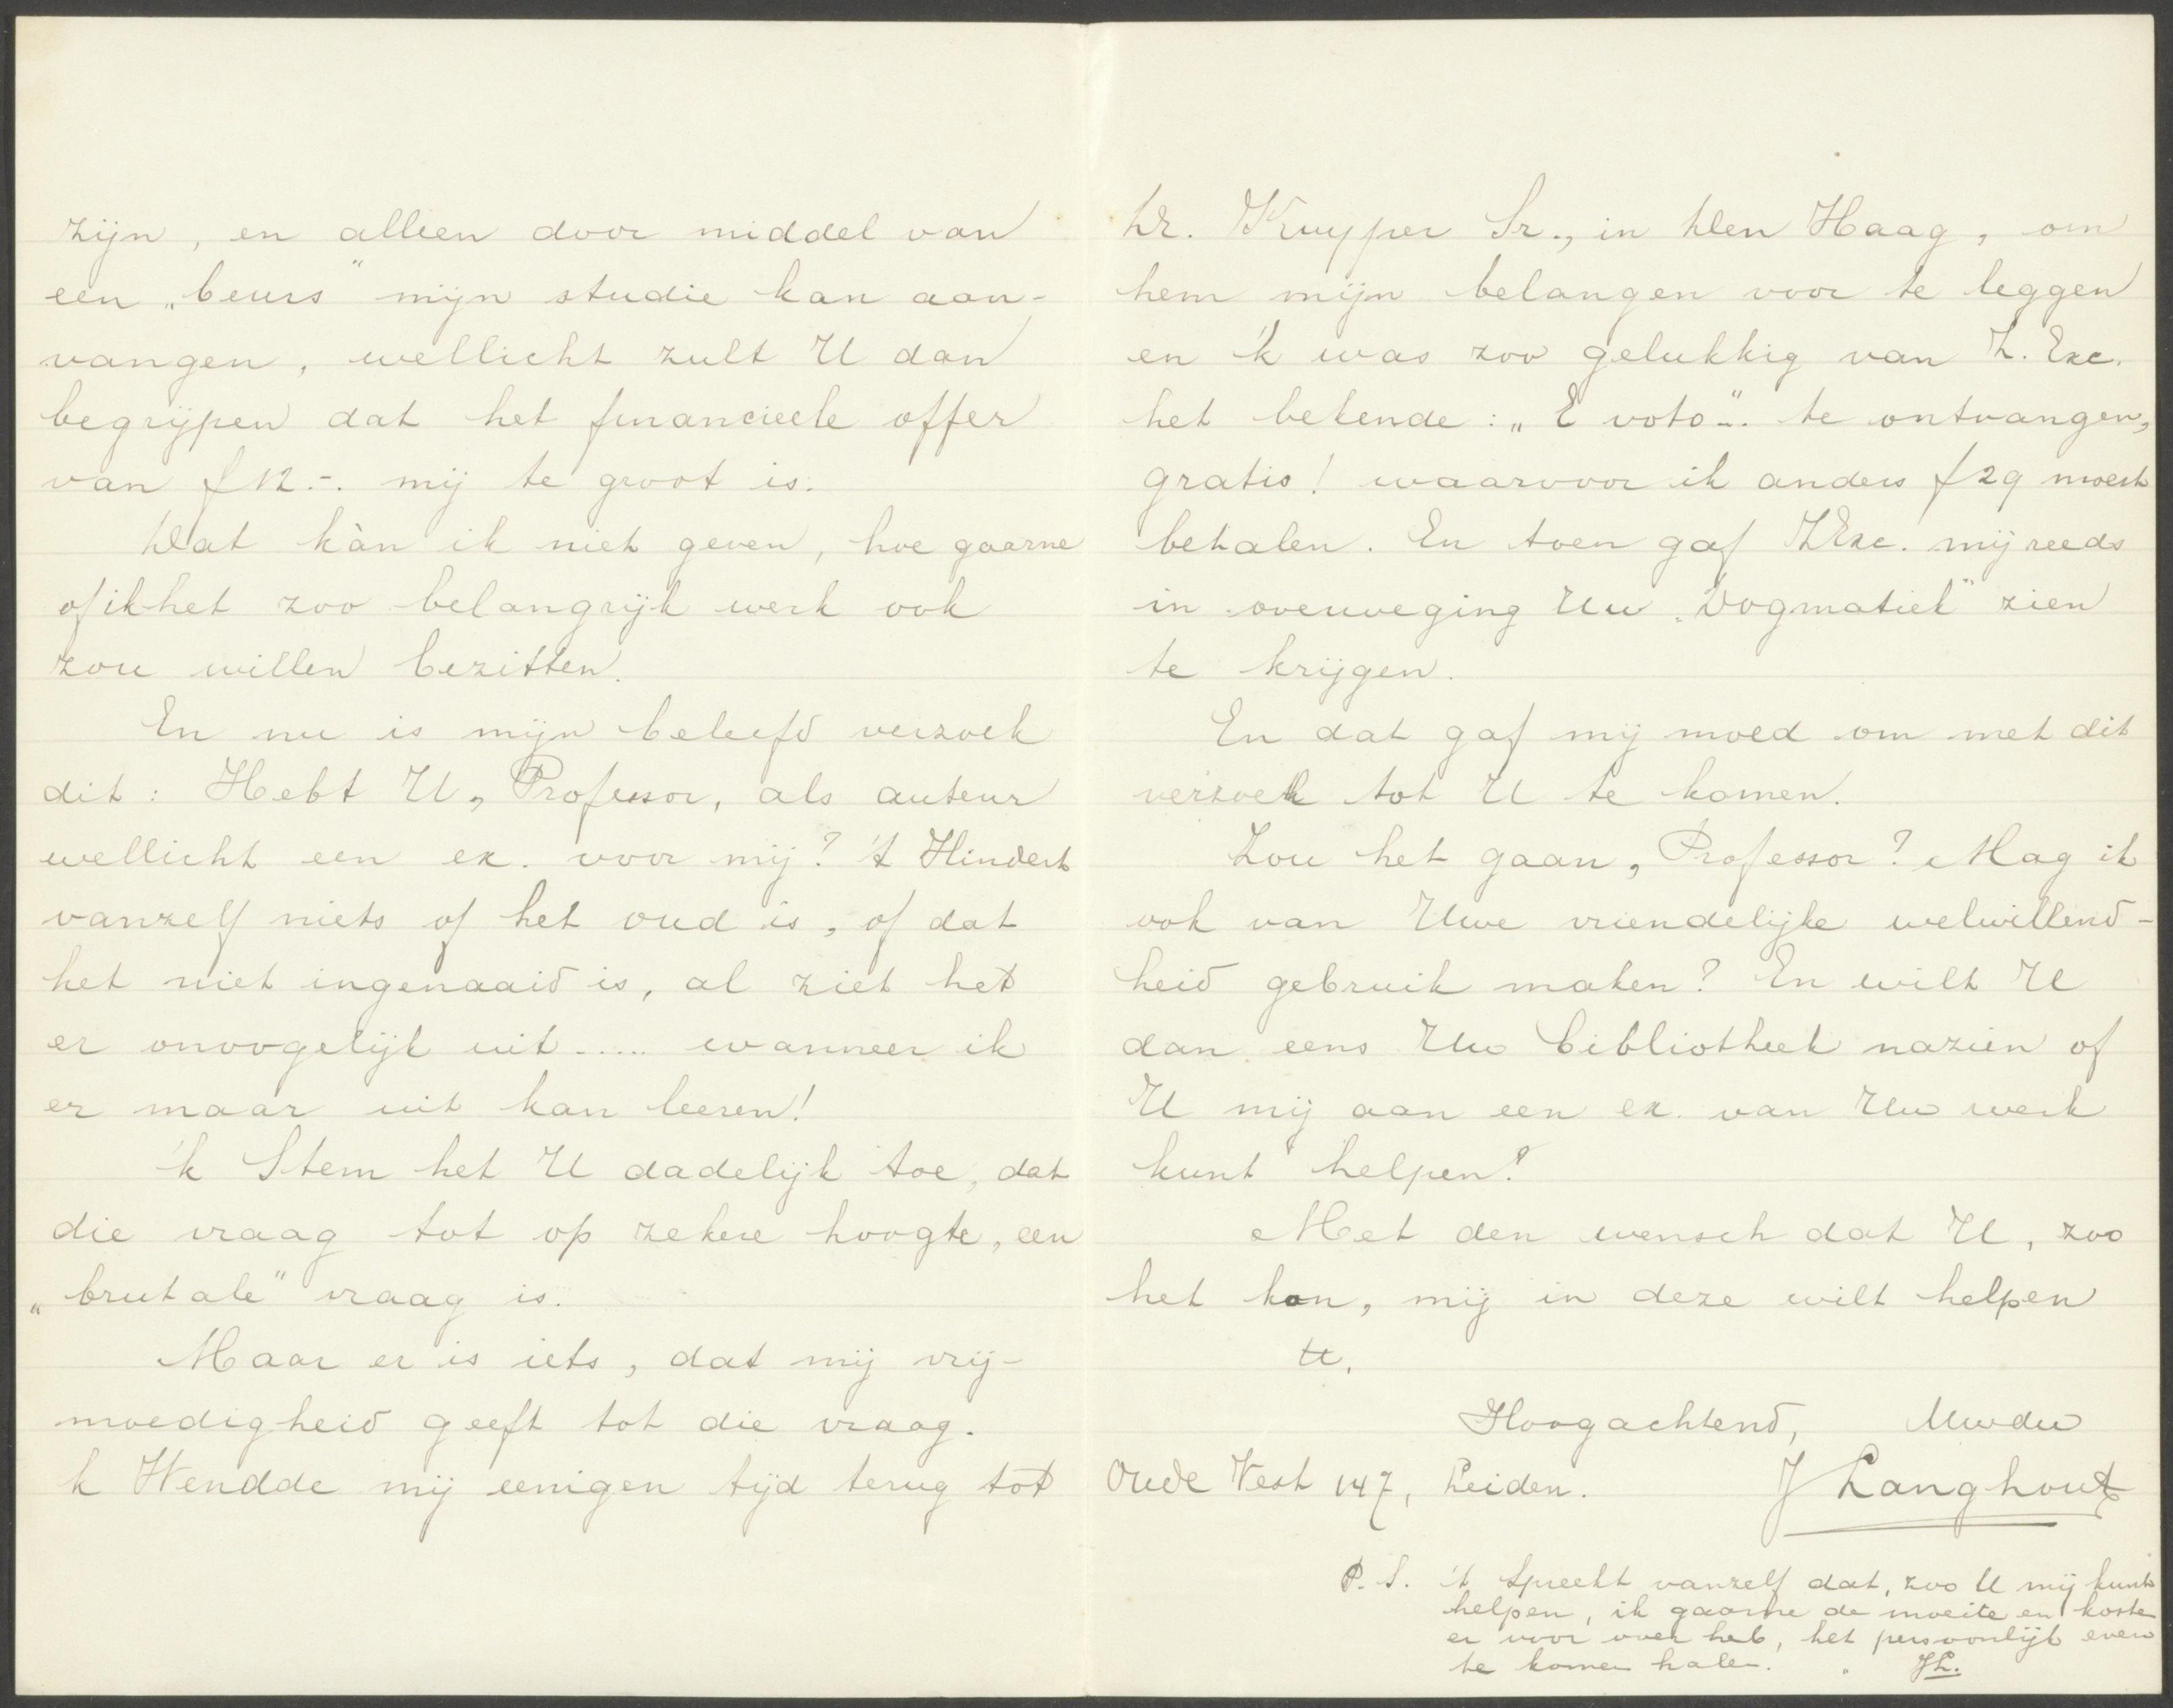 zijn, en alleen door middel van
een „beurs" mijn studie kan aan-
vangen, wellicht zult U dan
begrijpen dat het financieele offer
van f 12.-. mij te groot is.
Dat kàn ik niet geven, hoe gaarne
of ik het zoo belangrijk werk ook
zou willen bezitten.
En nu is mijn beleefd verzoek
dit: Hebt U, Professor, als auteur
wellicht een ex. voor mij? 't Hindert
vanzelf niets of het oud is, of dat
het niet ingenaaid is, al ziet het
er onoogelijk uit..... wanneer ik
er maar uit kan leeren!
'k Stem het U dadelijk toe, dat
die vraag tot op zekere hoogte, een
„brutale" vraag is.
Maar er is iets, dat mij vrij-
moedigheid geeft tot die vraag.
k Wendde mij eenigen tijd terug tot
Dr. Kuyper Sr., in Den Haag, om
hem mijn belangen voor te leggen
en 'k was zoo gelukkig van Z. Exc.
het bekende: „E voto".. te ontvangen,
gratis! waarvoor ik anders f 29 moest
betalen. En toen gaf ZExc. mij reeds
in overweging Uw „Dogmatiek" zien
te krijgen.
En dat gaf mij moed om met dit
verzoek tot U te komen.
Zou het gaan, Professor? Mag ik
ook van Uwe vriendelijke welwillend-
heid gebruik maken? En wilt U
dan eens Uw bibliotheek nazien of
U mij aan een ex. van Uw werk
kunt helpen?
Met den wensch dat U, zoo
het kan, mij in deze wilt helpen
tt.
Hoogachtend, Uwdw
Oude Vest 147, Leiden. J Langhout
P.S. 't Spreekt vanzelf dat, zoo U mij kunt
helpen, ik gaarne de moeite en koste
er voor over heb, het persoonlijk even
te komen halen. JL.